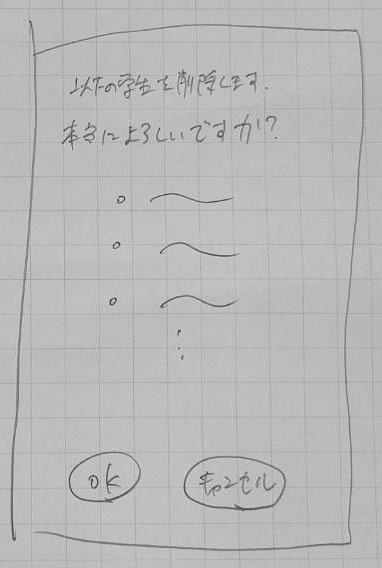 以下の学生を削除します.
本当によろしいですか?
OK
キャンセル